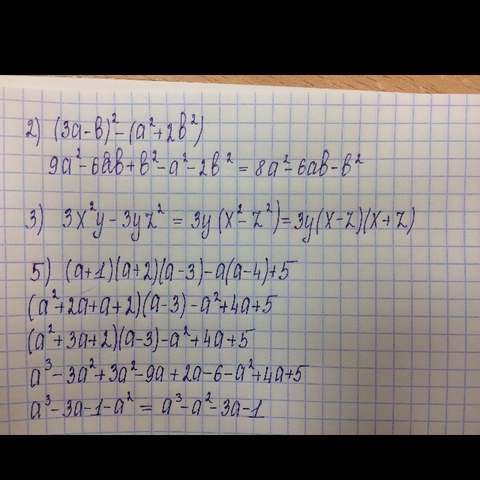 2) (3a-b)²-(a²+2b²)
9a²-6ab+b²-a²-2b² = 8a²-6ab-b²
3) 3x²y-3yz² = 3y(x²-z²)=3y(x-z)(x+z)
5) (a+1)(a+2)(a-3)-a(a-4)+5
(a²+2a+a+2)(a-3)-a²+4a+5
(a²+3a+2)(a-3)-a²+4a+5
a³-3a²+3a²-9a+2a-6-a²+4a+5
a³-3a-1-a² = a³-a²-3a-1